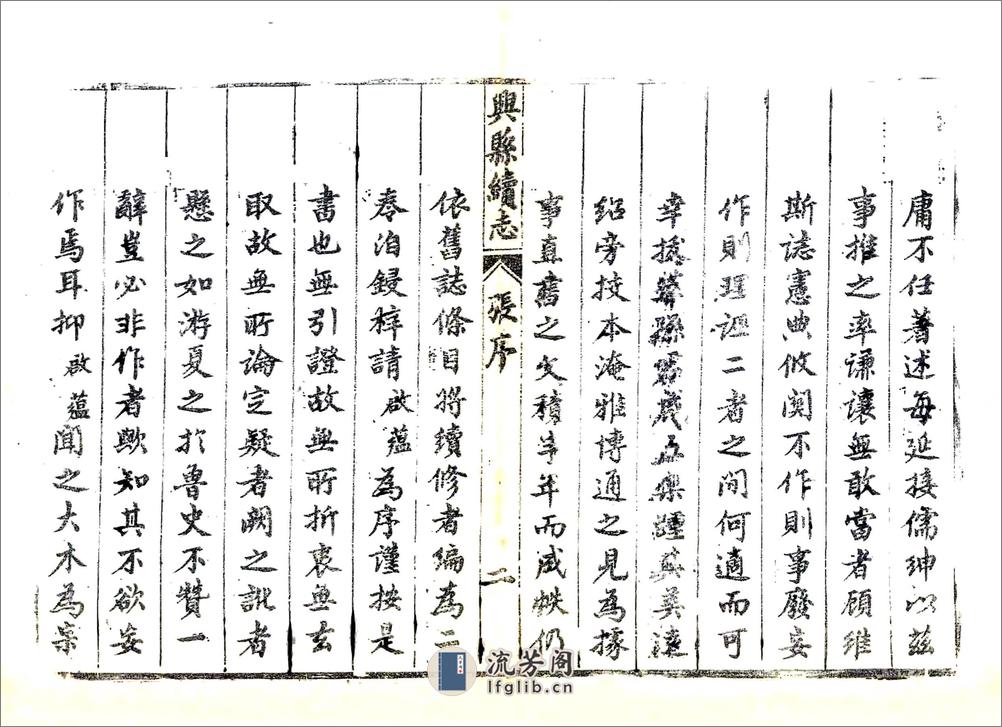 庸不任著述每延接儒紳以茲
事推之率谦讓無敢當者顧維
斯誌憲典攸関不作則事廢妄
作則理誣二者之间何適而可
幸孫踵其美遠
紹旁技本淹雅博通之見為據
事直書之文積半年而成帙仍
興縣續志 張序 二
依舊誌條目将續修者編為二
卷洎鋟梓請啟蘊為序謹按是
書也無引證故無所折衷無去
取故無所論定疑者闕之訛者
懸之如游夏之於魯史不贊一
辭豈必非作者歟知其不欲妄
作焉耳抑啟蘊聞之大木為杗
流芳阁
lfglib.cn